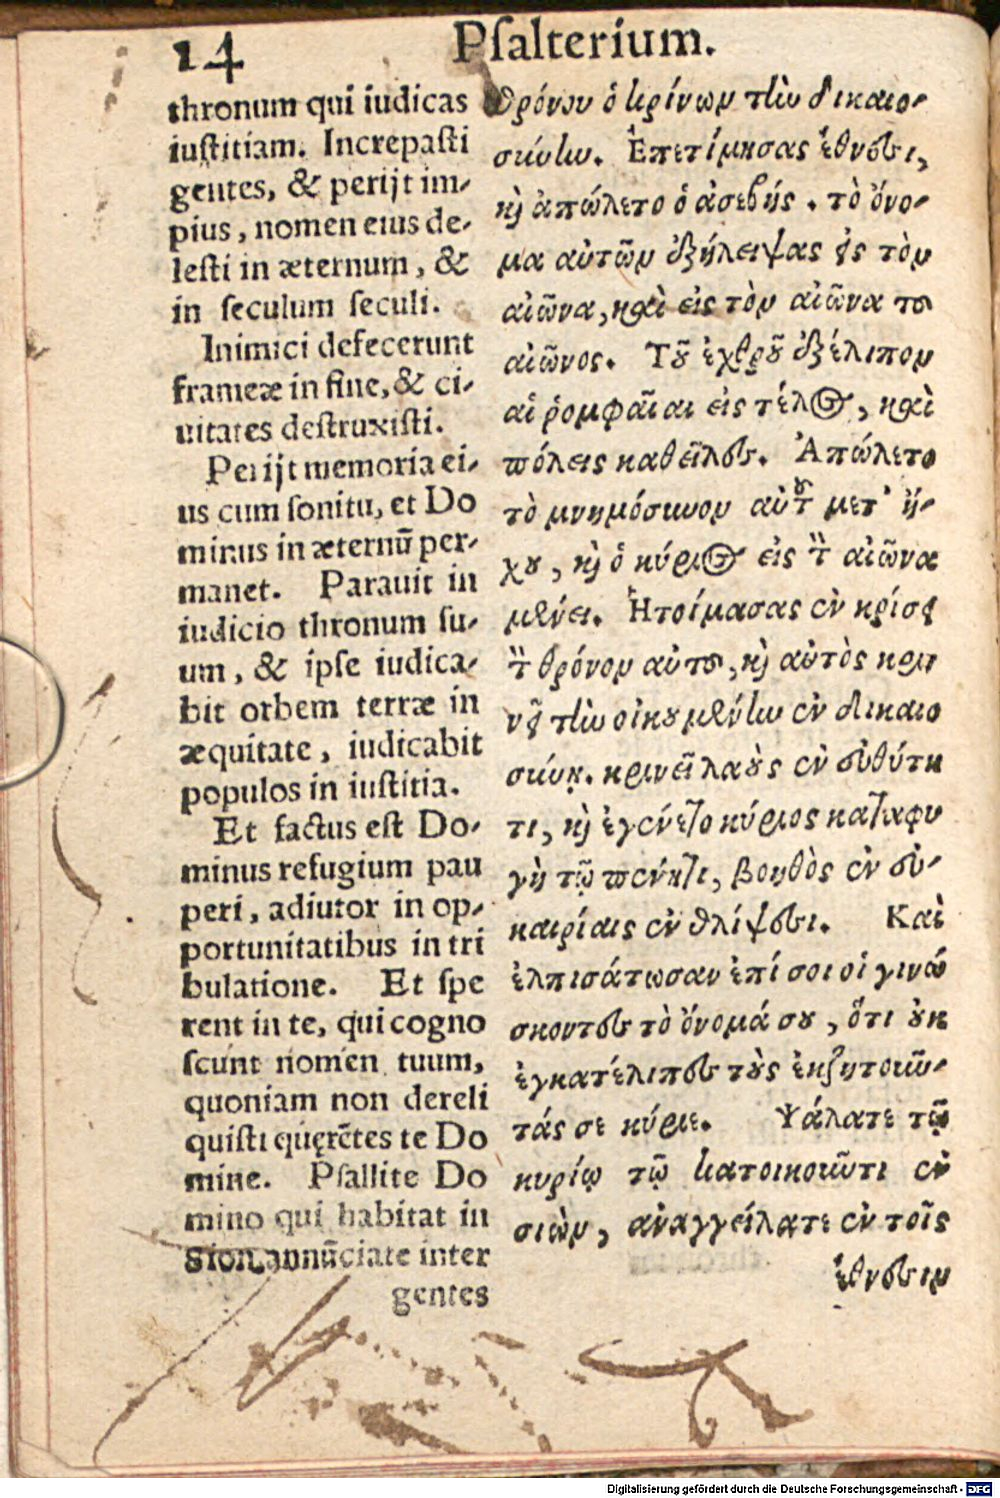 14
Pſalterium.
thronum qui iudicas
iuſtitiam. Increpaſti
gentes, & perijt im-
pius, nomen eius de-
leſti in æternum, &
in ſeculum ſeculi.
Inimici defecerunt
frameæ in fine, & ci-
uitates deſtruxiſti.
Perijt memoria ei-
us cum ſonitu, et Do
minus in æternũ per-
manet. Parauit in
iudicio thronum ſu-
um, & ipſe iudica-
bit orbem terræ in
æquitate, iudicabit
populos in iuſtitia.
Et factus eſt Do-
minus refugium pau
peri, adiutor in op-
portunitatibus in tri
bulatione. Et ſpe
rent in te, qui cogno
ſcunt nomen tuum,
quoniam non dereli
quiſti quęrẽtes te Do
mine. Pſallite Do
mino qui habitat in
Sion, annũciate inter
gentes
θρόνου ὁ κρίνων τὴν δικαιο-
σύνην. Ἐπετίμησας ἔθνεσι,
καὶ ἀπώλετο ὁ ἀσεβής. τὸ ὄνο-
μα αὐτῶν ἐξήλειψας εἰς τὸν
αἰῶνα, καὶ εἰς τὸν αἰῶνα τοῦ
αἰῶνος. Τοῦ ἐχθροῦ ἐξέλιπον
αἱ ῥομφαῖαι εἰς τέλος, καὶ
πόλεις καθεῖλες. Ἀπώλετο
τὸ μνημόσυνον αὐτοῦ μετ' ἤ-
χου, καὶ ὁ κύριος εἰς τὸν αἰῶνα
μένει. Ἡτοίμασας ἐν κρίσει
τὸν θρόνον αὐτοῦ, καὶ αὐτὸς κρι
νεῖ τὴν οἰκουμένην ἐν δικαιο
σύνῃ. κρινεῖ λαοὺς ἐν εὐθύτη
τι, καὶ ἐγένετο κύριος καταφυ
γὴ τῷ πένητι, βοηθὸς ἐν εὐ-
καιρίαις ἐν θλίψεσι. Καὶ
ἐλπισάτωσαν ἐπί σοι οἱ γινώ
σκοντες τὸ ὄνομά σου, ὅτι οὐκ
ἐγκατέλιπες τοὺς ἐκζητοῦν-
τάς σε κύριε. Ψάλατε τῷ
κυρίῳ τῷ κατοικοῦντι ἐν
σιὼν, ἀναγγείλατε ἐν τοῖς
ἔθνεσιν
Digitalisierung gefördert durch die Deutsche Forschungsgemeinschaft - DFG